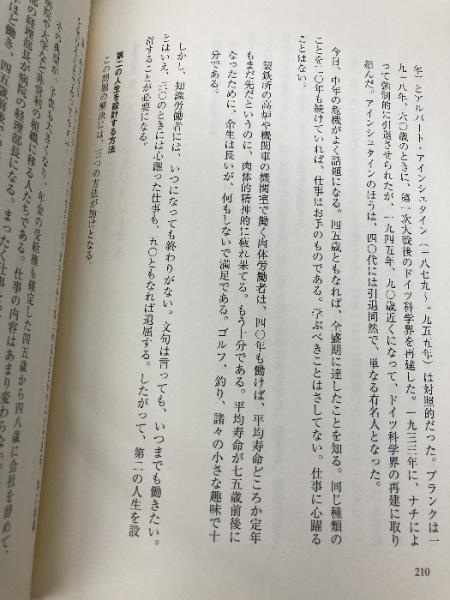 年）とアルバート・アインシュタイン（一八七九〜一九五五年）は対照的だった。プランクは一
九一八年、六〇歳のときに、第一次大戦後のドイツ科学界を再建した。一九三三年に、ナチによ
って強制的に引退させられたが、一九四五年、九〇歳近くになって、ドイツ科学界の再建に取り
組んだ。アインシュタインのほうは、四〇代には引退同然で、単なる有名人となった。
今日、中年の危機がよく話題になる。四五歳ともなれば、全盛期に達したことを知る。同じ種類の
ことを二〇年も続けていれば、仕事はお手のものである。学ぶべきことはさしてない。仕事に心躍る
ことはない。
製鉄所の高炉や機関車の機関室で働く肉体労働者は、四〇年も働けば、平均寿命どころか定年
もまだ先だというのに、肉体的精神的に疲れ果てる。もう十分である。平均寿命が七五歳前後に
なったために、余生は長いが、何もしないで満足である。ゴルフ、釣り、諸々の小さな趣味で十
分である。
しかし、知識労働者には、いつになっても終わりがない。文句は言っても、いつまでも働きたい。
とはいえ、三〇のときには心躍った仕事も、五〇ともなれば退屈する。したがって、第二の人生を設
計することが必要になる。
第二の人生を設計する方法
この問題の解決には、三つの方法が助けとなる。
年金の受給権も確定した四五歳から四八歳に会社を辞めて、
病院や大学など非営利の組織に移る人たちである。
部の経理部長が病院の経理部長になる。仕事の内容はあまり変わらない。
ほど働き、四五歳前後で
210